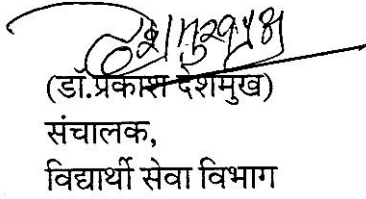 (डॉ.प्रकाश देशमुख)
संचालक,
विद्यार्थी सेवा विभाग